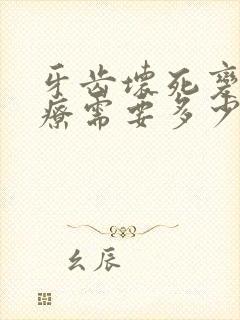 牙齿坏死变
疗需要多少
幺辰